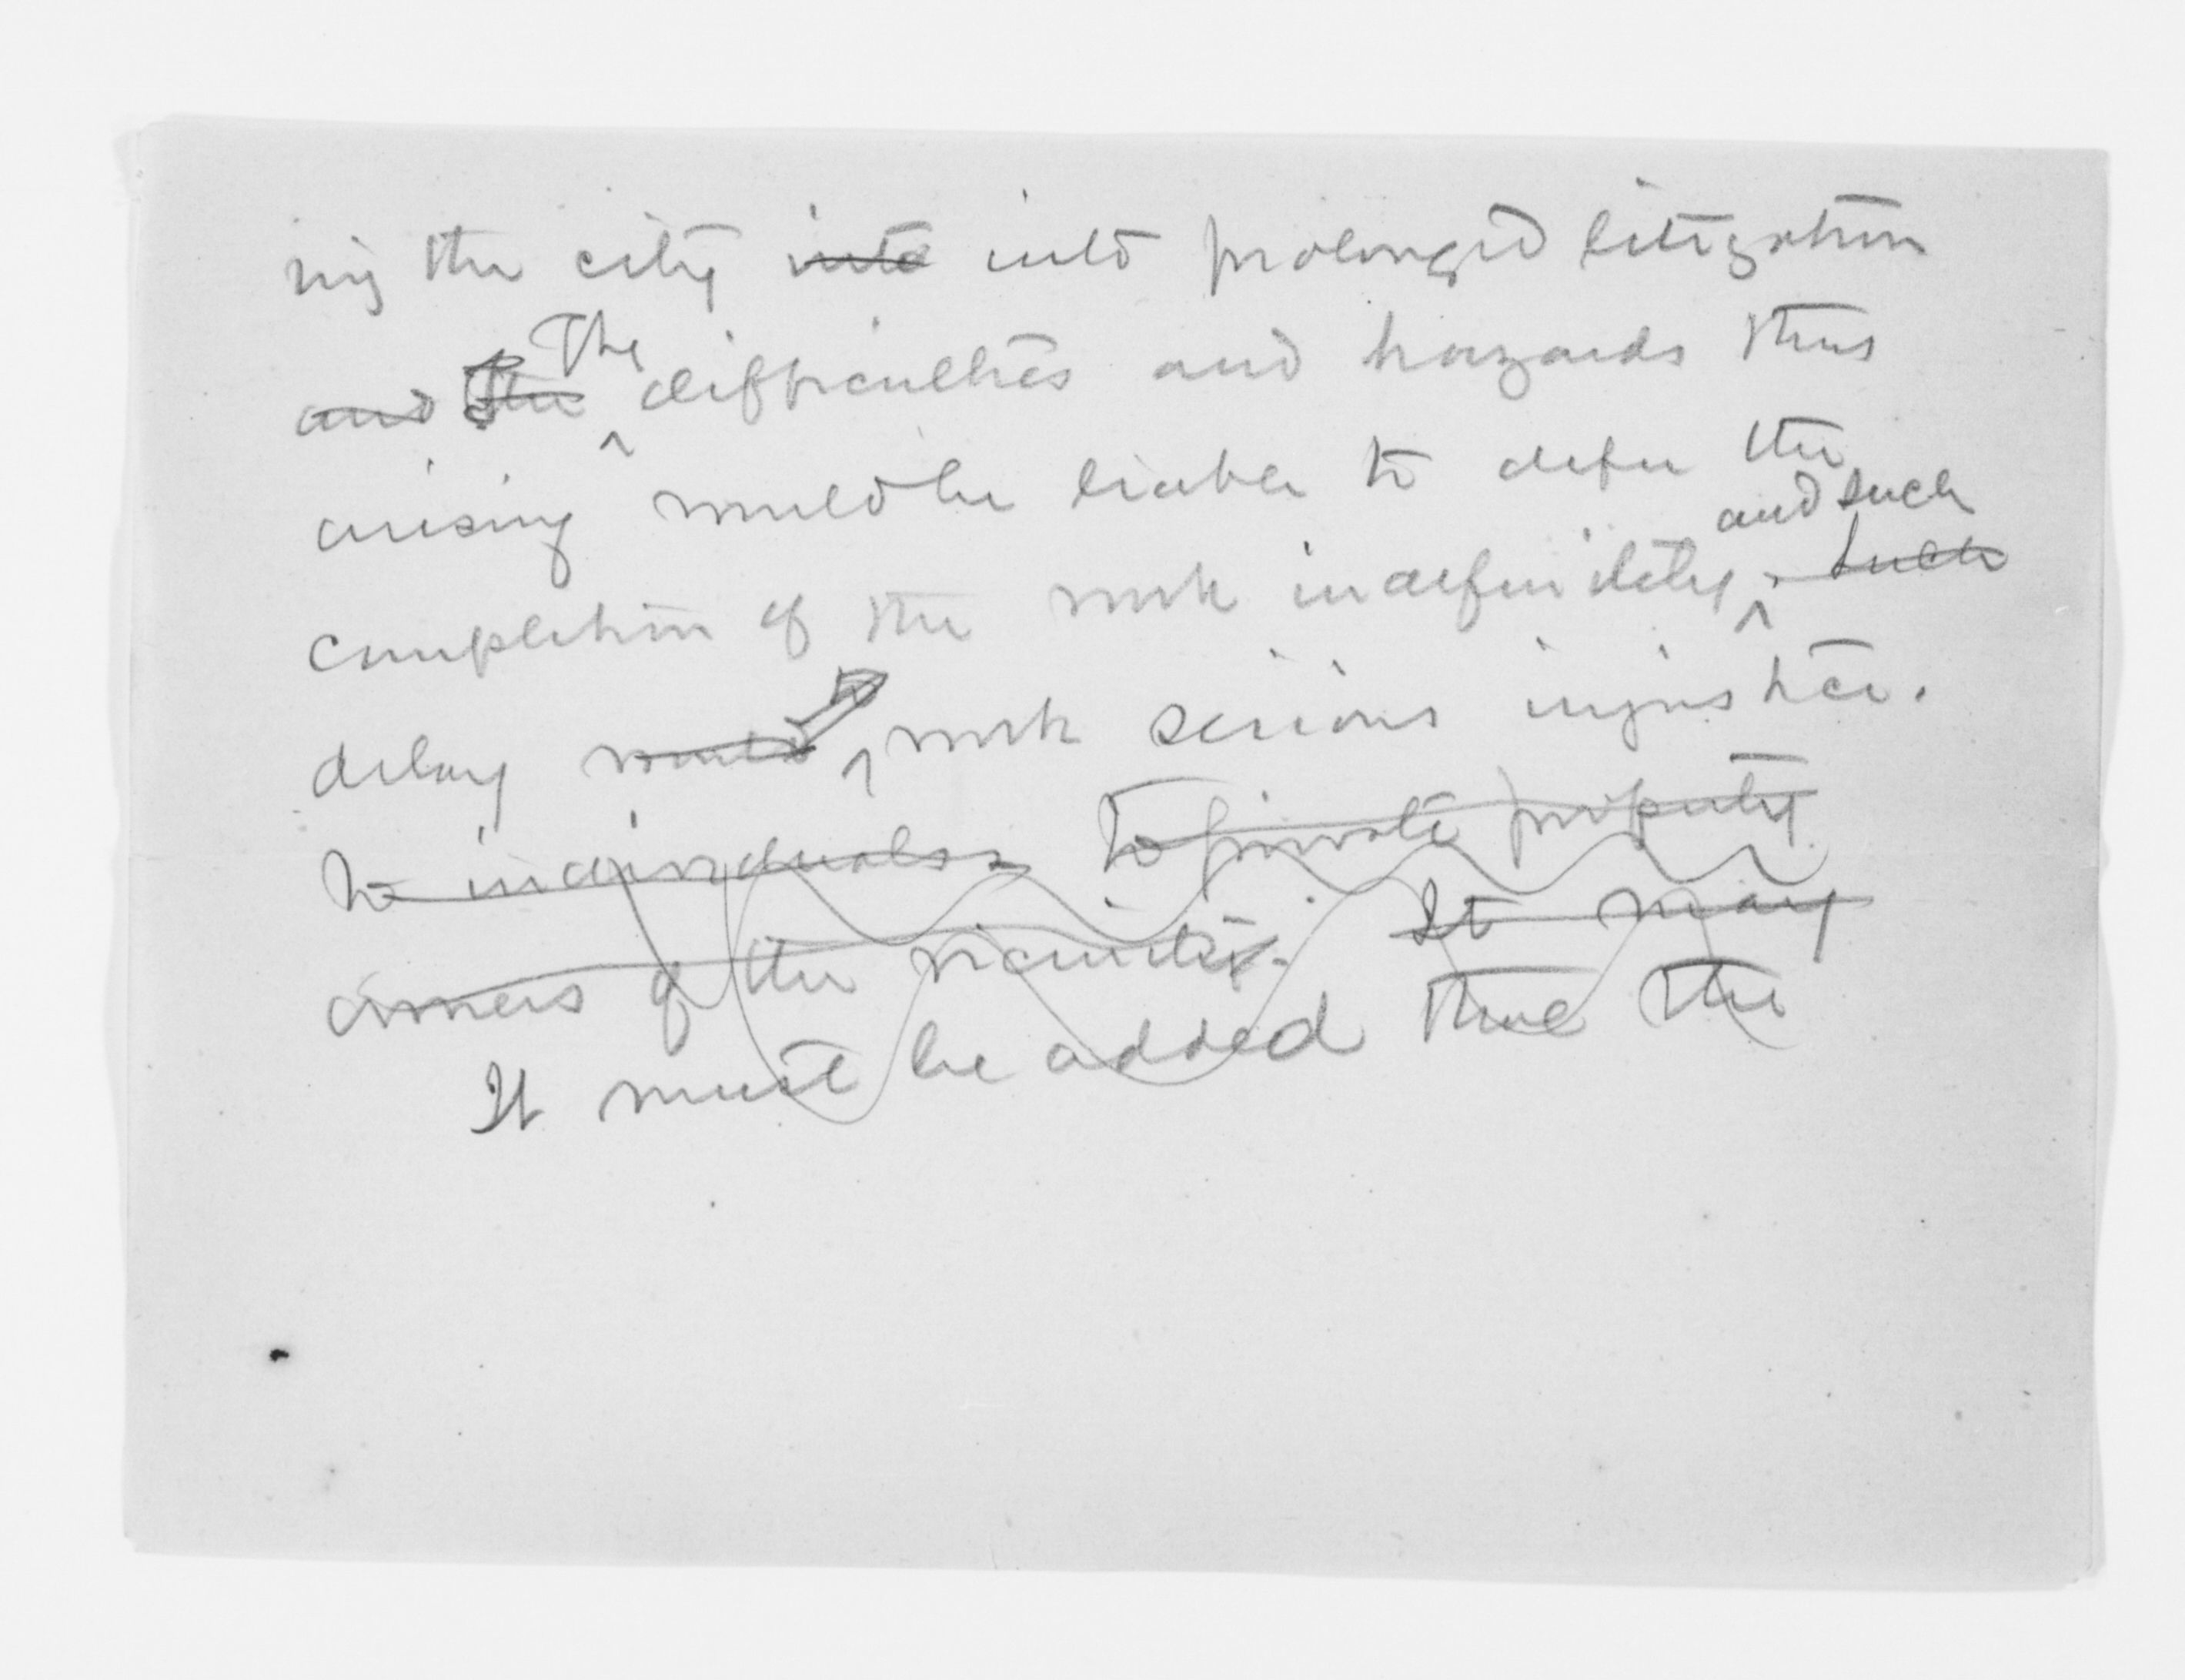 ing the city into into prolonged litigation
and the The difficulties and hazards thus
arising would be liable to defer the
completion of the work indefinitely and such . Such
delay would work serious injustice.
to individuals. to private property
owners of the vicinity. It may
It must be added that the